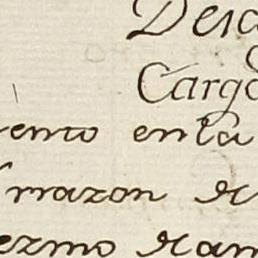 Desc
Cargo
iento en la
razon de
ezmo de an